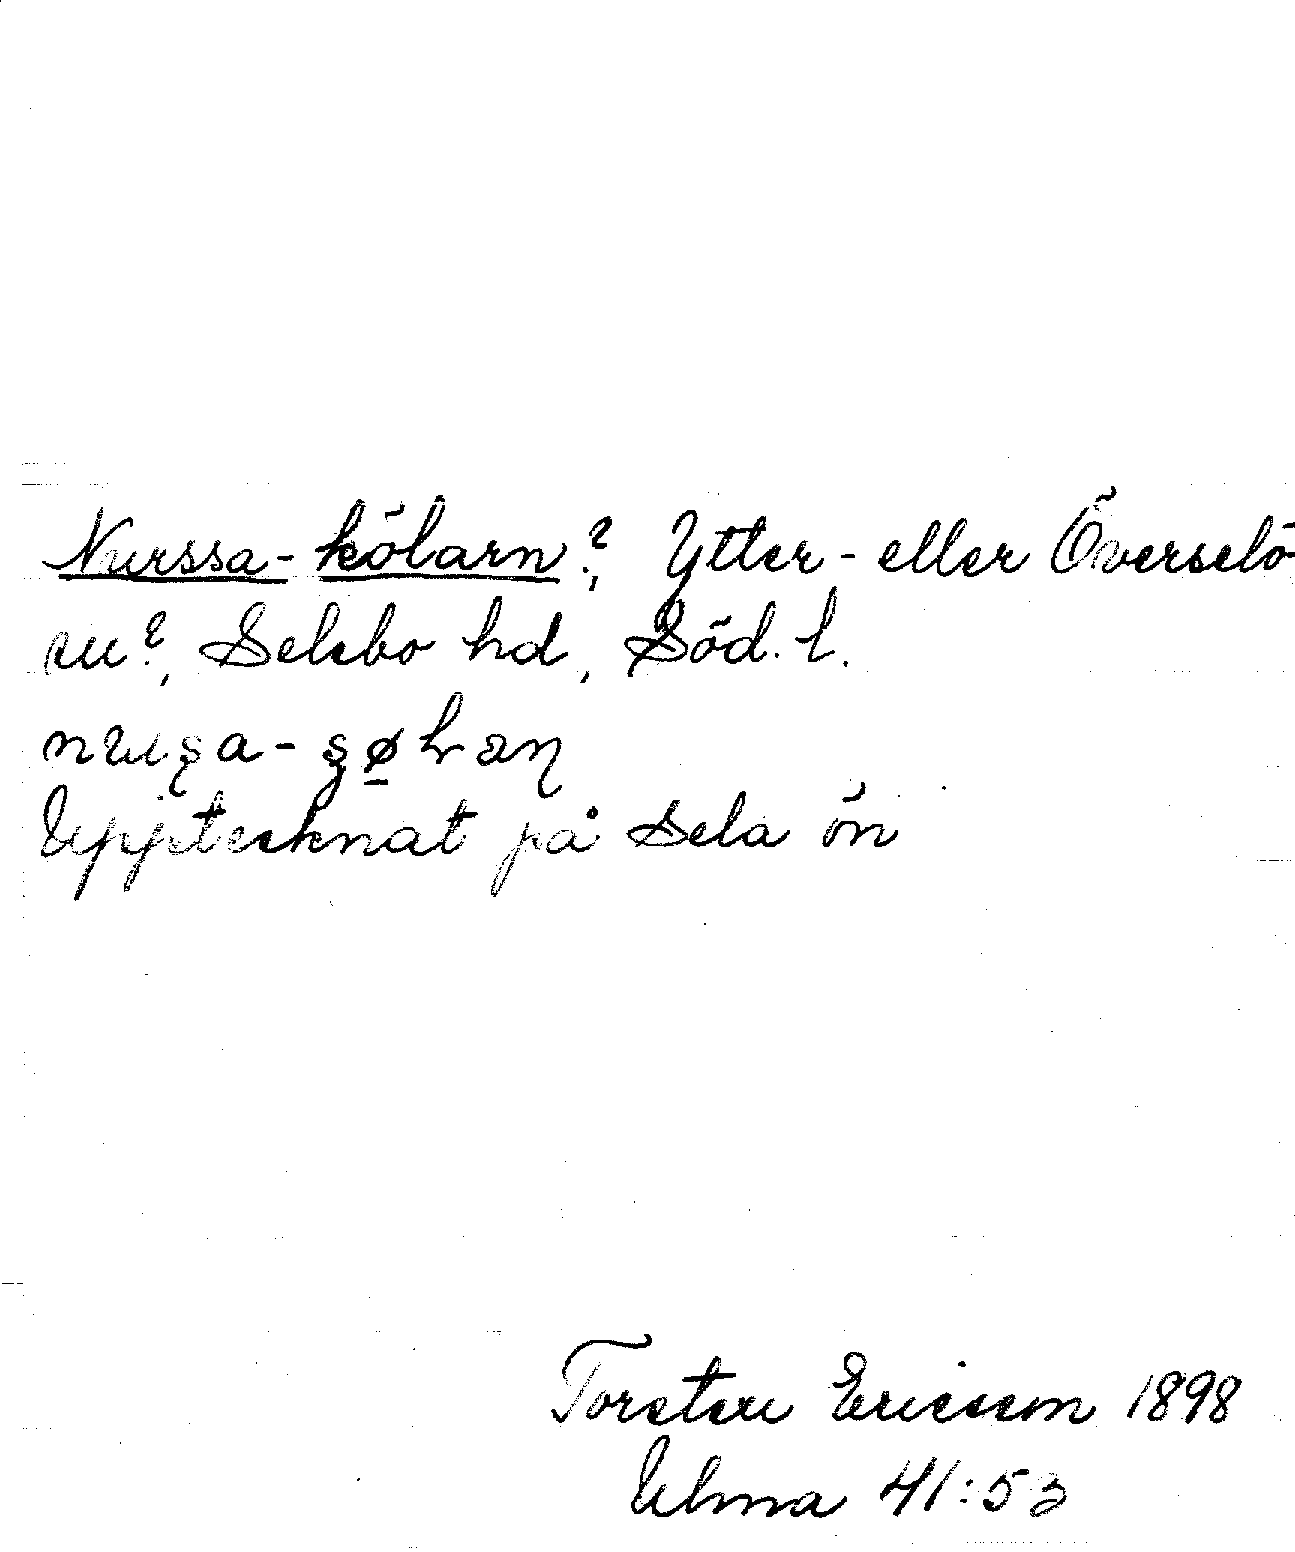 Nurssa-kölarn?, Ytter- eller Överselö
su?, Selebo hd, Söd. l.
Upptecknat på Sela ön
Torsten Ericsson 1898
Ulma 41:53